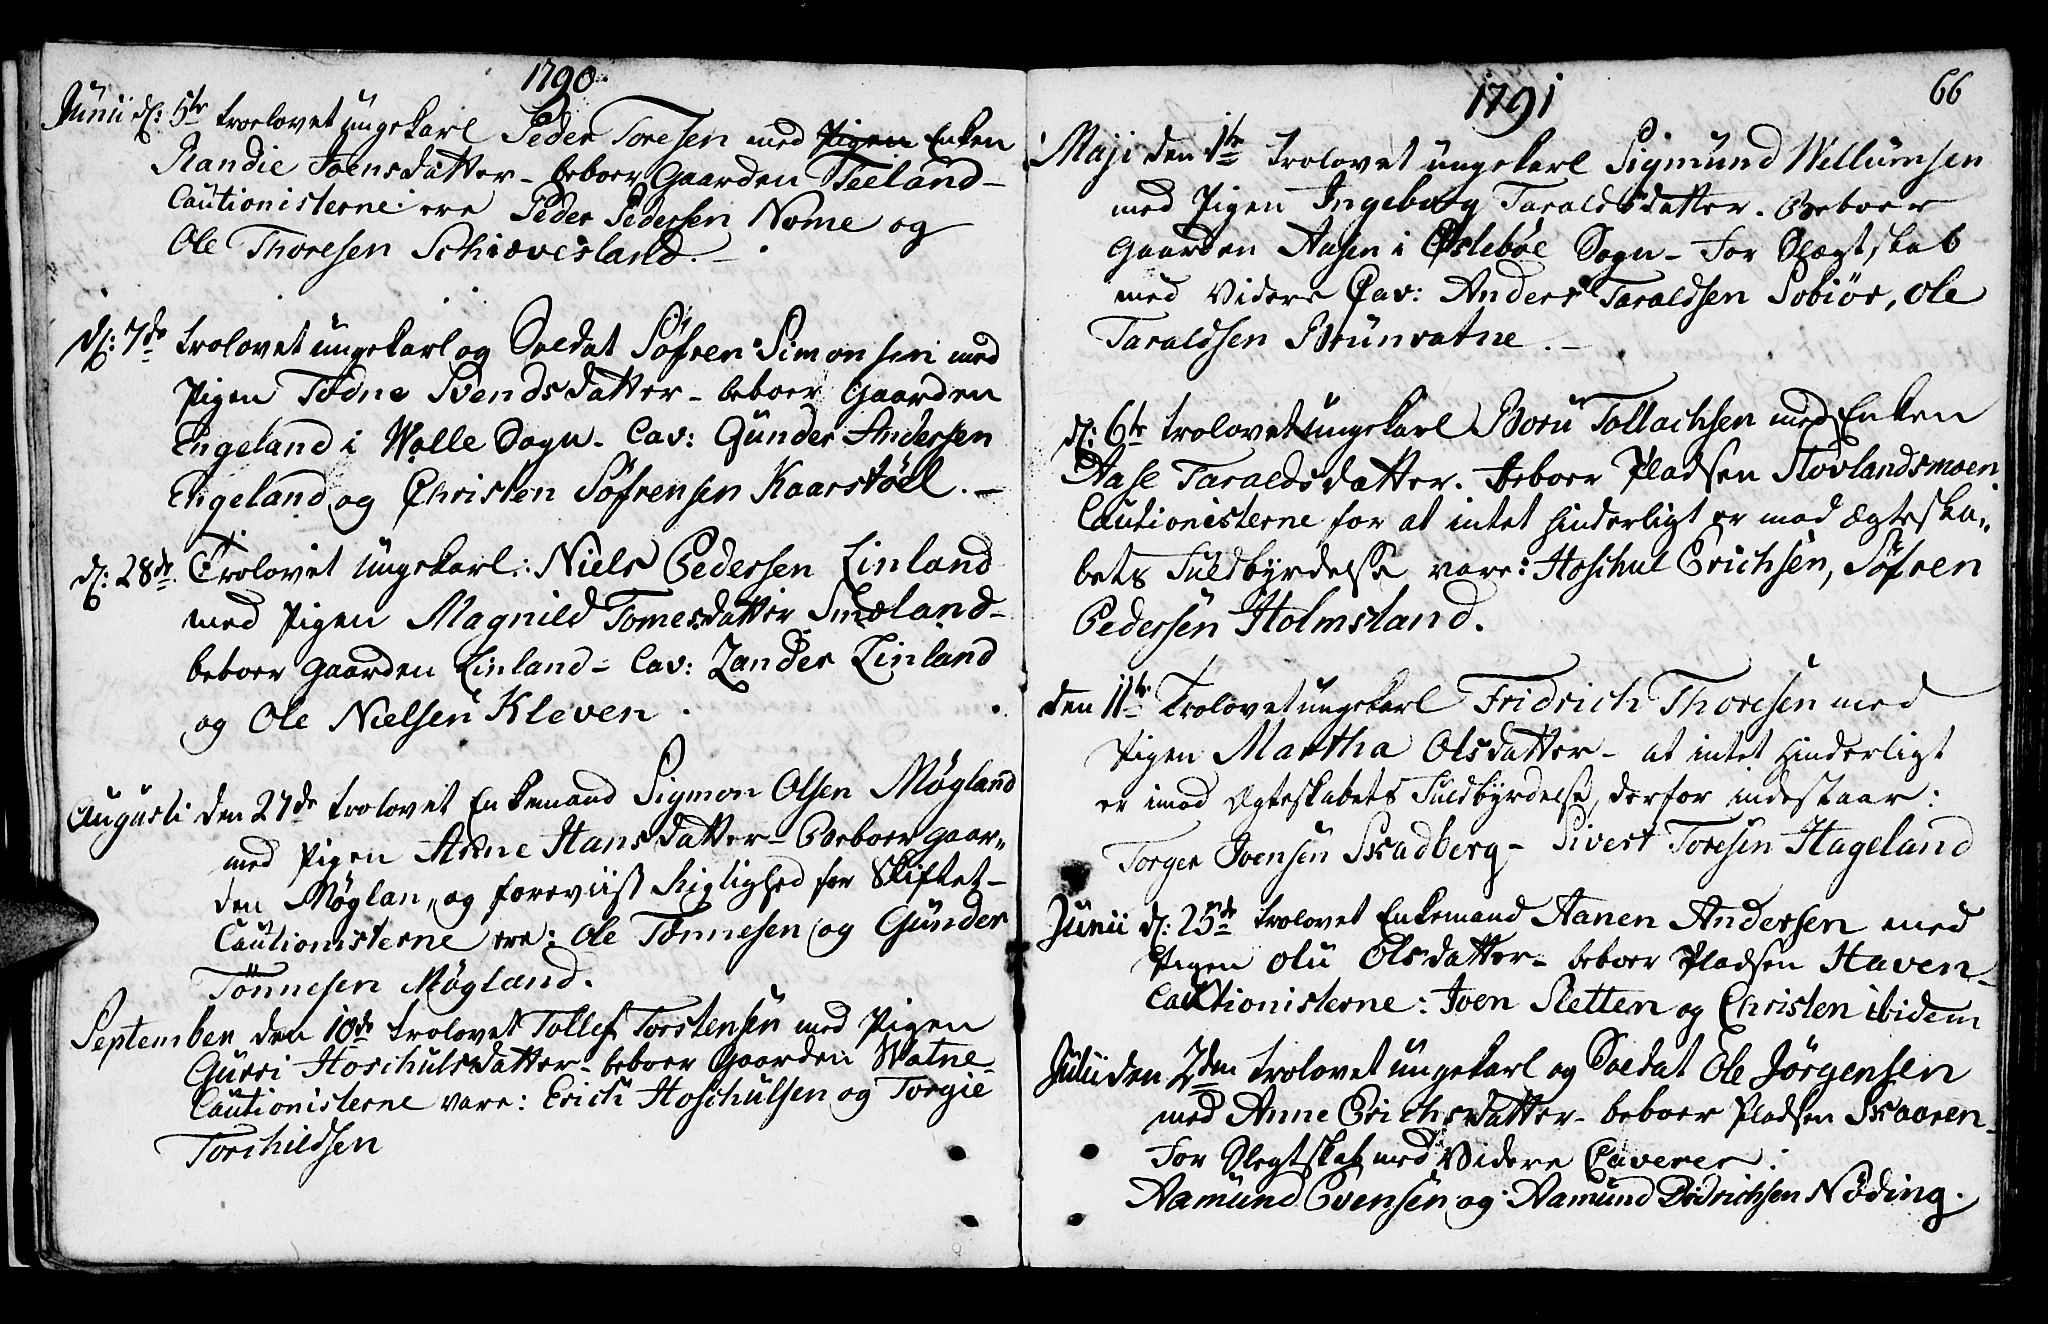 1790.
Junii d: 5te troelovet ungekarl Peder Toresen med Pigen Enken
Randie Joensdatter - beboer Gaarden Feeland -
Cautionisterne ere Peder Pedersen Nome og
Ole Thoresen Schiævesland. -
d: 7de trolovet ungekarl og Soldat Söfren Simonsen med
Pigen Todne Svendsdatter - beboer Gaarden
Engeland i Walle Sogn. Cav: Gunder Andersen
Engeland og Christen Söfrensen Kaarstöel. -
d: 28de. Trolovet ungekarl: Niels Pedersen Linland
med Pigen Magnild Tomesdatter Smæland -
beboer gaarden Linland - Cav: Zander Linland
og Ole Nielsen Kleven.
Augusti den 27de trolovet Enkemand Sigmon Olsen Mögland
med Pigen Anne Hansdatter - Beboer gaar„
den Möglan„ og foreviist Rigtighed for Skiftet -
Cautionisterne ere: Ole Tönnesen og Gunder
Tönnesen Mögland.
September den 10de trolovet Tollef Torstensen med Pigen
Gurri Hoschulsdatter - beboer Gaarden Watne -
Cautionisterne vare: Erich Hoschulsen og Torgie
Torchildsen
1791
66
Maji den 1te trolovet ungekarl Sigmund Willumsen
med Pigen Ingeborg Taraldsdatter. Beboer
Gaarden Aasen i Ösleböe Sogn - For Slægtskab
med Videre Cav: Anders Taraldsen Lobiör, Ole
Taraldsen Brunvatne. -
d: 6te trolovet ungekarl Boru Tollachsen med Enken
Aase Taraldsdatter. Beboer Pladsen Hovlandsmoen
Cautionisterne for at intet hinderligt er mod Egteska„
bets Fuldbyrdelse vare: Hoschul Erichsen, Söfren
Pedersen Holmsland.
den 11te Trolovet ungekarl Fridrich Thoresen med
Pigen Martha Olsdatter - at intet hinderligt
er imod Egteskabets Fuldbyrdelse, derfor indestaar:
Torger Joensen Skadberg - Sivert Toresen Hageland
Junii d: 25de trolovet Enkemand Aanen Andersen med
Pigen Olu Olsdatter - beboer Pladsen Haven -
Cautionisterne: Joen Sletten og Christen ibidem
Julii den 2den trolovet ungekarl og Soldat Ole Jörgensen
med Anne Erichsdatter - beboer Pladsen Skaaren -
For Slegtskab med Videre Caverer:
Aamund Evensen og Aamund Didrichsen Nöding.